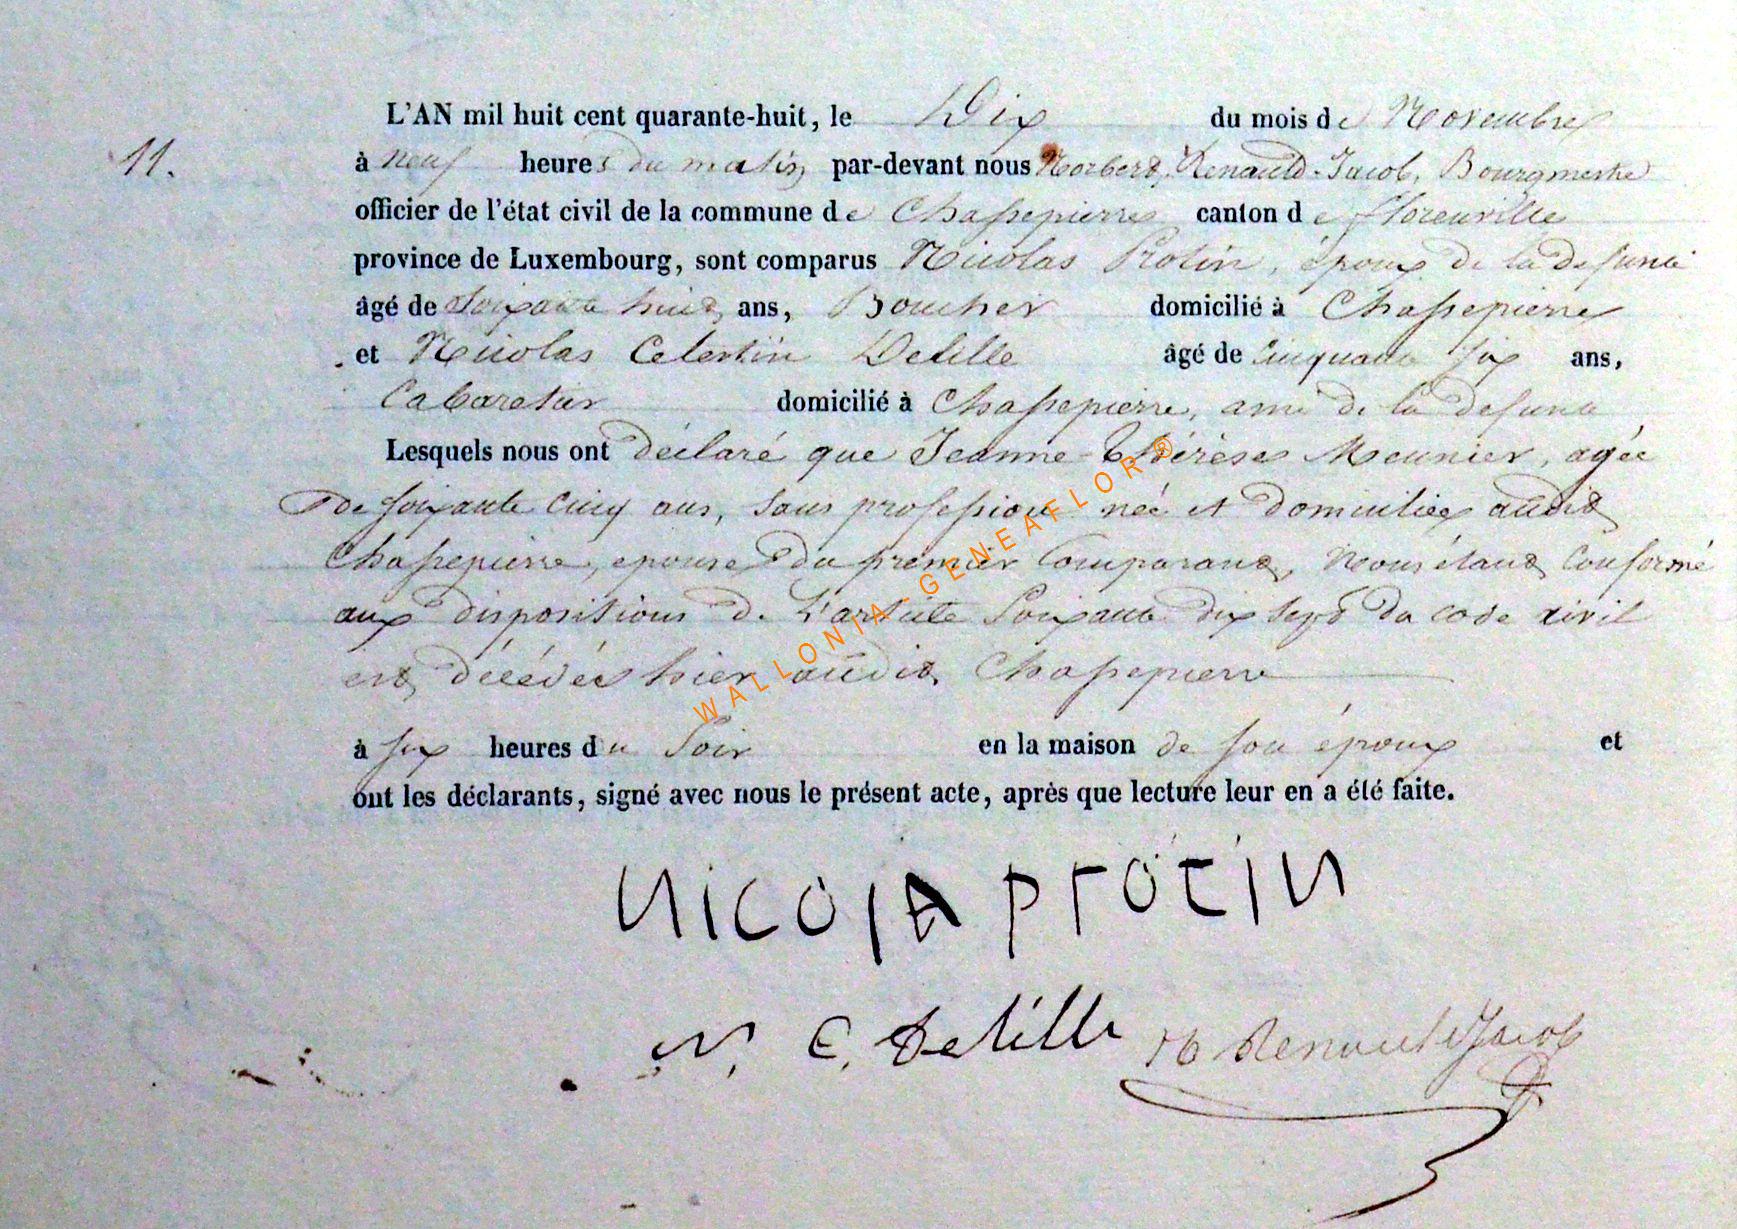 L'AN mil huit cent quarante-huit, le Dix du mois de Novembre
11.
à neuf heures du matin par-devant nous Norbert Renauld-Jacob, Bourgmestre
officier de l'état civil de la commune de Chassepierre canton de florenville
province de Luxembourg, sont comparus Nicolas Protin, époux de la defunte
âgé de Soixante huit ans, Boucher domicilié à Chassepierre
et Nicolas Celestin Delille âgé de Cinquante six ans,
Cabaretier domicilié à Chassepierre, ami de la defunte
Lesquels nous ont déclaré que Jeanne-Thérèse Meunier, agée
de soixante cinq ans, sans profession née et domiciliée audit
Chassepierre, epouse du premier Comparant, Nous étant Conformé
aux dispositions de L'article Soixante dix sept du code civil
est décédée hier audit Chassepierre
à six heures du Soir en la maison de son époux et
ont les déclarants, signé avec nous le présent acte, après que lecture leur en a été faite.
WALLONIA-GENEAFLOR®
nicola protin
N. C. Delille N Renauld Jacob